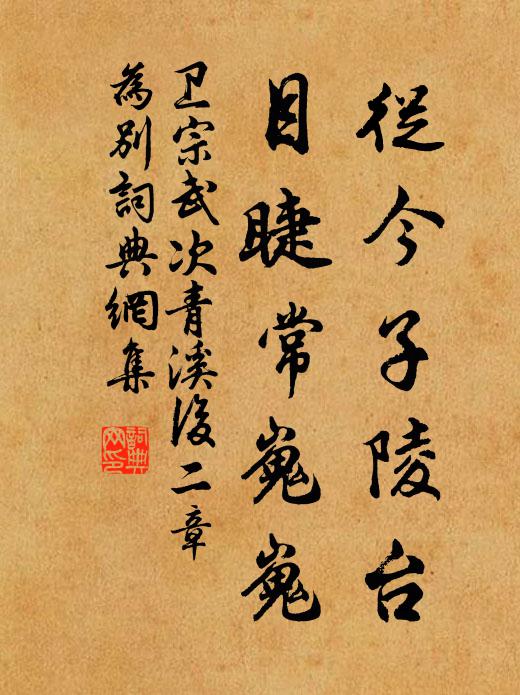 從今子陵台
目睫常嵬嵬
卫宗武次青溪後二章
為別詞典網集
詞典
网印